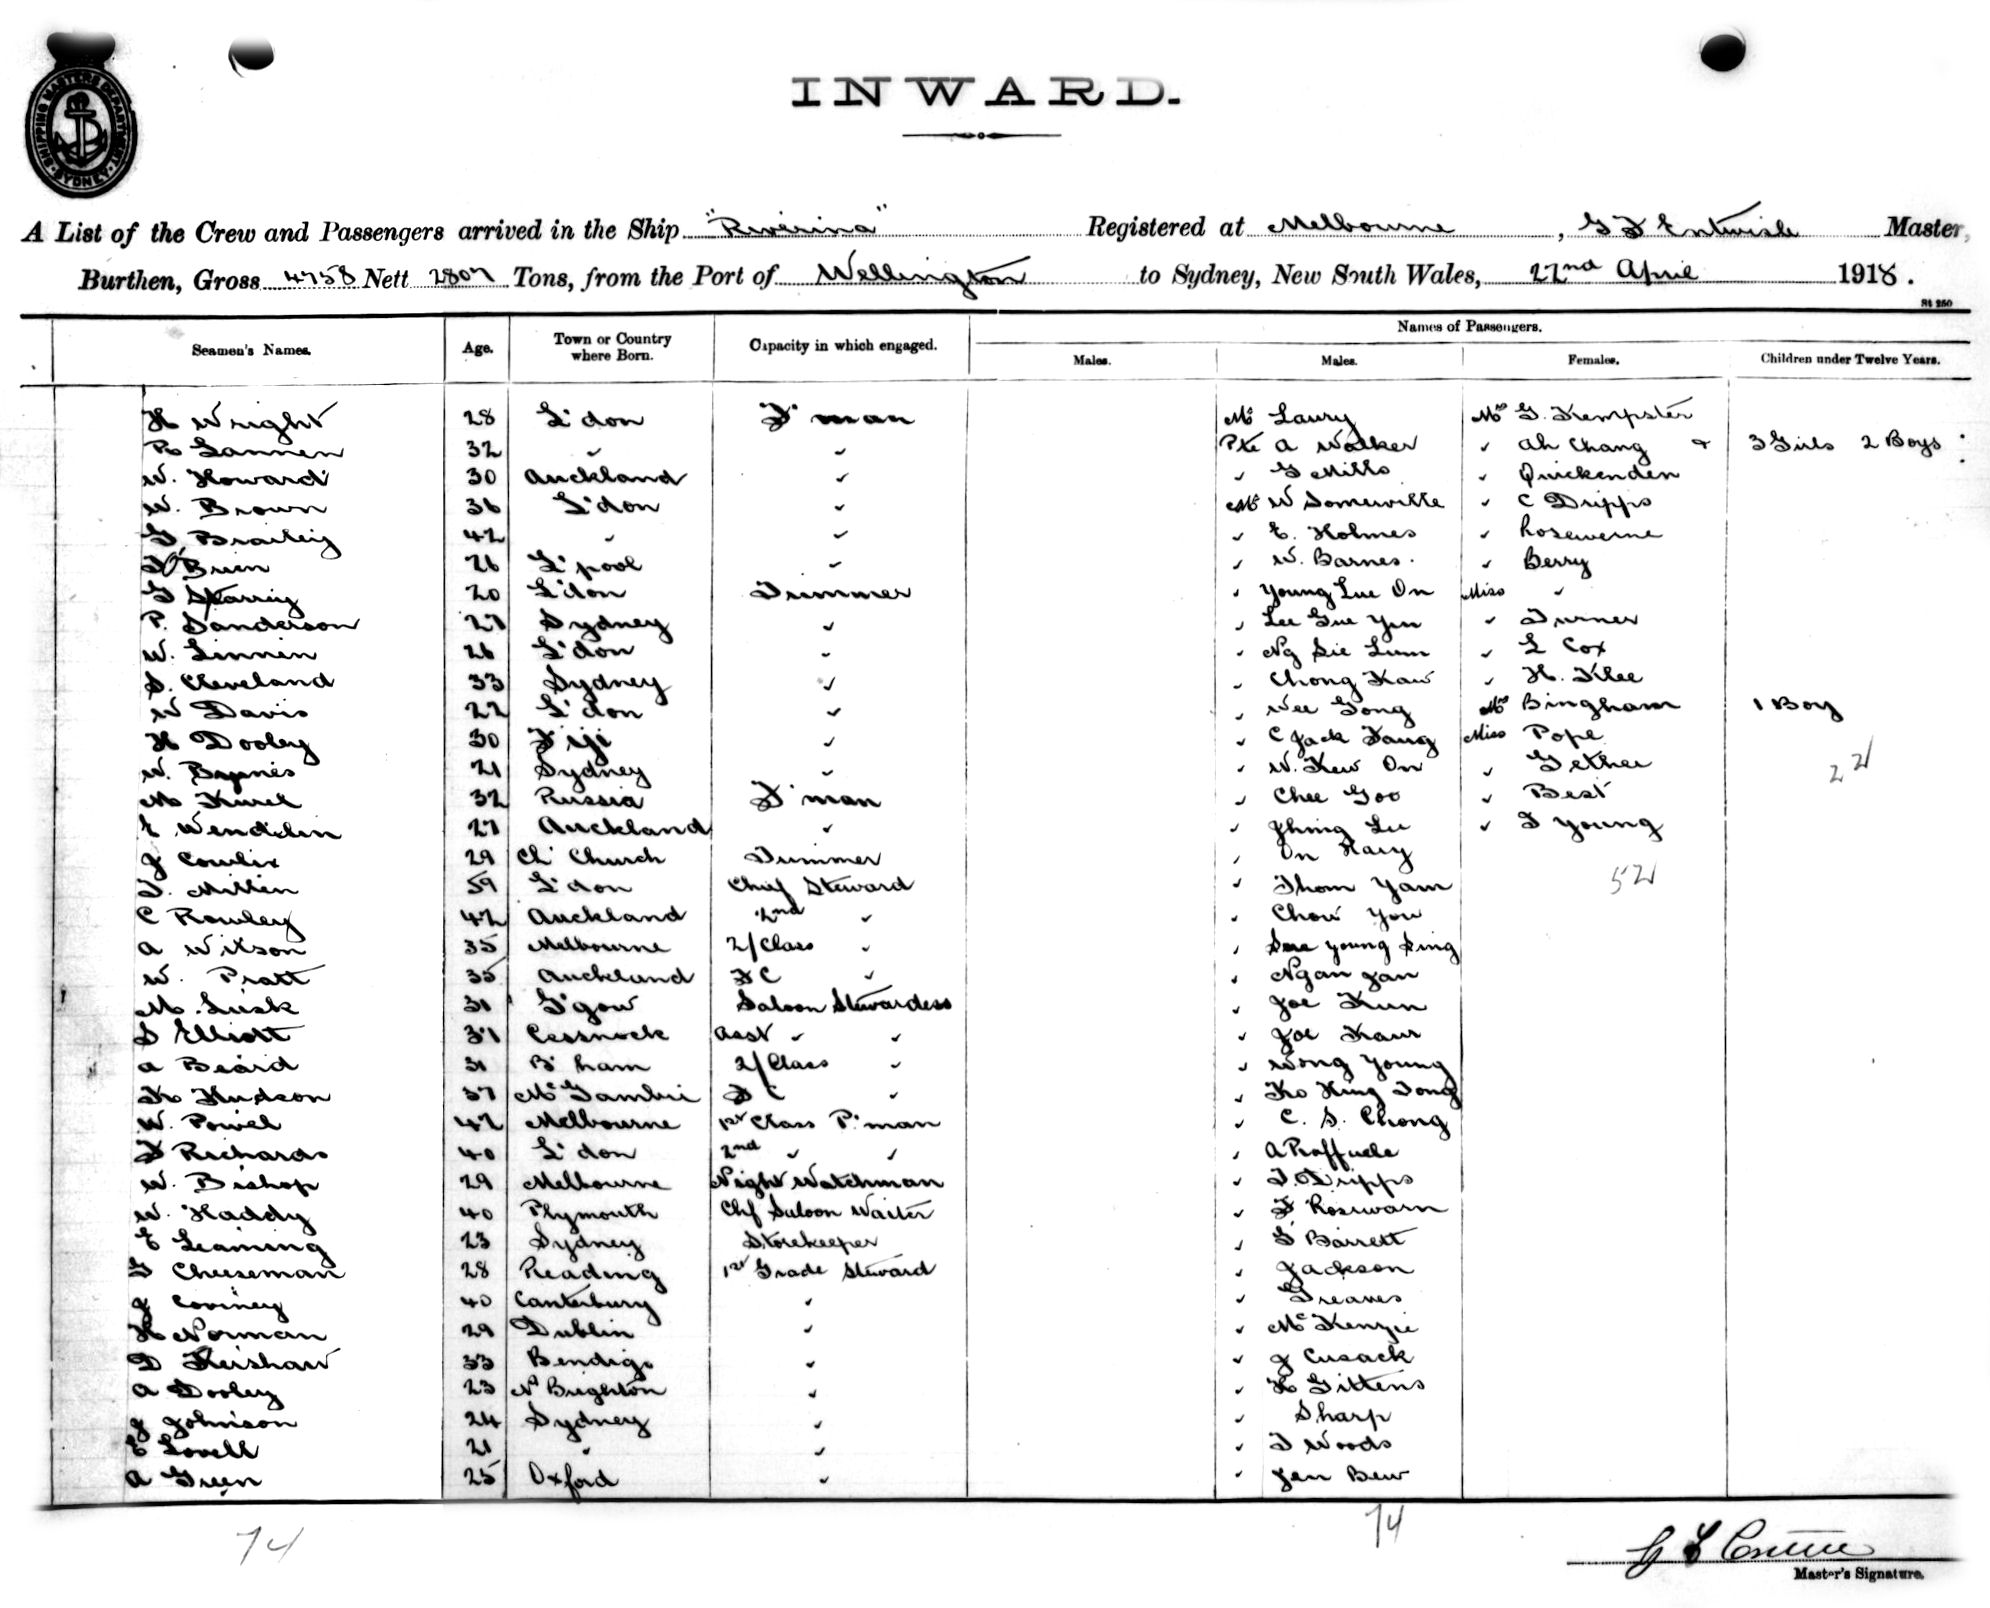 SHIPPING MASTERS DEPARTMENT SYDNEY
INWARD.
A List of the Crew and Passengers arrived in the Ship "Riverina" Registered at Melbourne, G F Entwisle Master,
Burthen, Gross 4758 Nett 2807 Tons, from the Port of Wellington to Sydney, New South Wales, 22nd April 1918.
St 250
Names of Passengers.
Seamen's Names. Age. Town or Country where Born. Capacity in which engaged. Males. Males. Females. Children under Twelve Years.
H Wright 28 L'don F'man Mr Laury Mrs G. Kempster
R Lannen 32 " " Pte A Walker " Ah Chang & 3 Girls 2 Boys
W. Howard 30 Auckland " " G Mills " Quickenden
W. Brown 36 L'don " Mr W Somerville " C Dripps
G Brailey 42 " " " E. Holmes " Rosewerne
J O'Brien 26 L'pool " " W. Barnes. " Berry
G Starrig 20 L'don Trimmer " Young Lue On Miss "
P. Sanderson 27 Sydney " " Lee Gue Yin " Turner
W. Linnen 26 L'don " " Ng Sie Lum " L Cox
S. Cleveland 33 Sydney " " Chong Kaw " H. Klee
W Davis 22 L'don " " Wee Gong Mrs Bingham 1 Boy
H Dooley 30 Fiji " " C Jack Fang Miss Pope
W. Byrnes 21 Sydney " " W. Kew On " Gether 22
M Kurel 32 Russia F'man " Chee Goo " Best
E Wendelin 27 Auckland " " Jhing Lee " I Young
J Cowlix 29 Ch' Church Trimmer " On Hary
T. Millen 59 L'don Chief Steward " Thom Yam 52
C Rowley 42 Auckland 2nd " " Chow You
A Wilson 35 Melbourne 2/Class " " See Young Sing
W. Pratt 35 Auckland F C " " Ngan Jan
M. Lusk 31 G'gow Saloon Stewardess " Joe Kun
S Elliott 37 Cessnock Asst " " " Joe Kaw
A Beard 31 B'ham 2/Class " " Wong Young
K Hudson 37 Mt Gambier F C " " Ko Hing Tong
W. Powel 42 Melbourne 1st Class P'man " C. S. Chong
F Richards 40 L'don 2nd " " " A Raffaele
W. Bishop 29 Melbourne Night Watchman " J. Dripps
W. Haddy 40 Plymouth Chf Saloon Waiter " F Rosewarn
E Leaming 23 Sydney Storekeeper " G Barrett
G Cheeseman 28 Reading 1st Grade Steward " Jackson
J Coviney 40 Canterbury " " Greaves
H Norman 29 Dublin " " McKenzie
D Kershaw 33 Bendigo " " J Cusack
A Dooley 23 N Brighton " " H Gittens
J Johnson 24 Sydney " " Sharp
E Lovell 21 " " " T Woods
A Green 25 Oxford " " Jen Bew
74 74
Master's Signature.